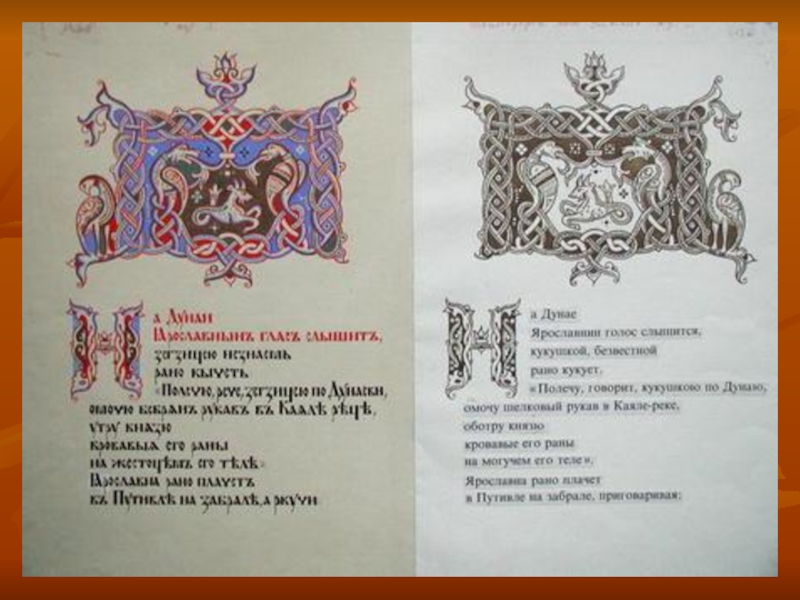 На Дунаи
Ꙗрославнынъ гласъ слышитъ,
зегзицею незнаемь
рано кычеть
«Полечю, рече, зегзицею по Дунаеви,
омочю бебрянъ рукавъ въ Каялѣ рѣцѣ,
утру князю
кровавыя его раны
на жестоцѣмъ его тѣлѣ»
Ꙗрославна рано плачетъ
въ Путивлѣ на забралѣ, а ркучи
На Дунае
Ярославнин голос слышится,
кукушкой, безвестной
рано кукует.
«Полечу, говорит, кукушкою по Дунаю,
омочу шелковый рукав в Каяле-реке,
оботру князю
кровавые его раны
на могучем его теле»,
Ярославна рано плачет
в Путивле на забрале, приговаривая: